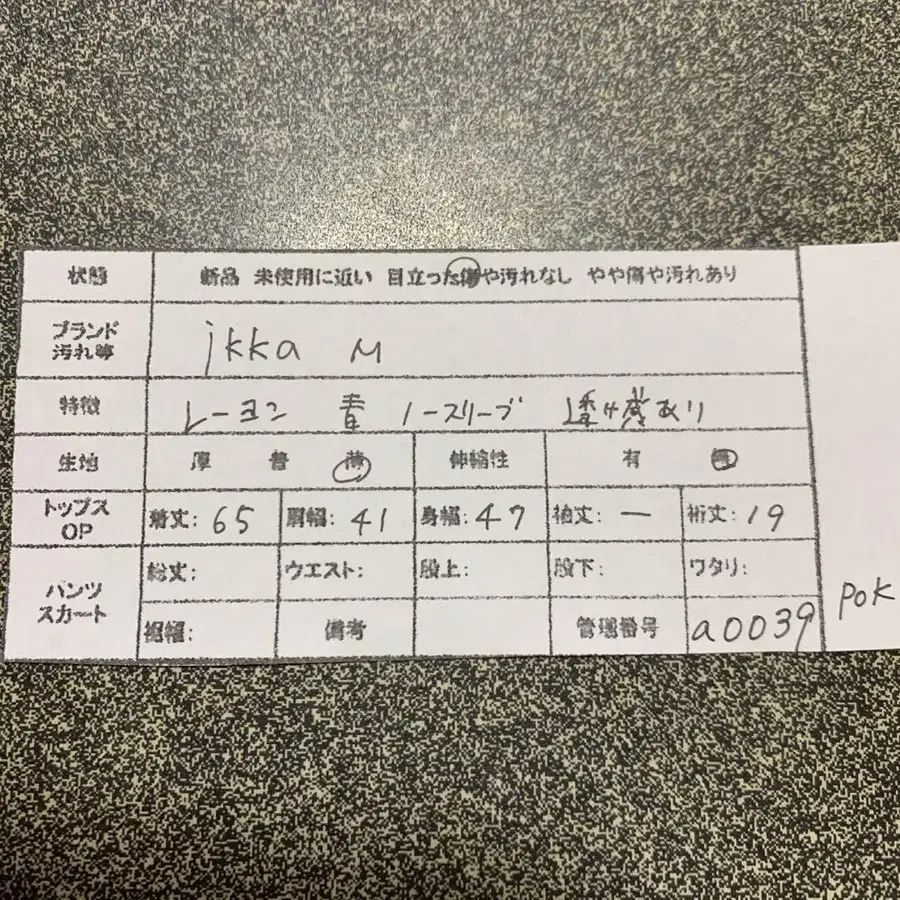 状態 新品 未使用に近い 目立った傷や汚れなし やや傷や汚れあり
ブランド
汚れ等
ikka M
特徴 レーヨン 青 ノースリーブ 透け感あり
生地 厚 普 薄 伸縮性 有 無
トップス
OP
着丈: 65 肩幅: 41 身幅: 47 袖丈: ー 裄丈: 19
パンツ
スカート
総丈: ウエスト: 股上: 股下: ワタリ:
裾幅: 備考 管理番号 a0039
POK